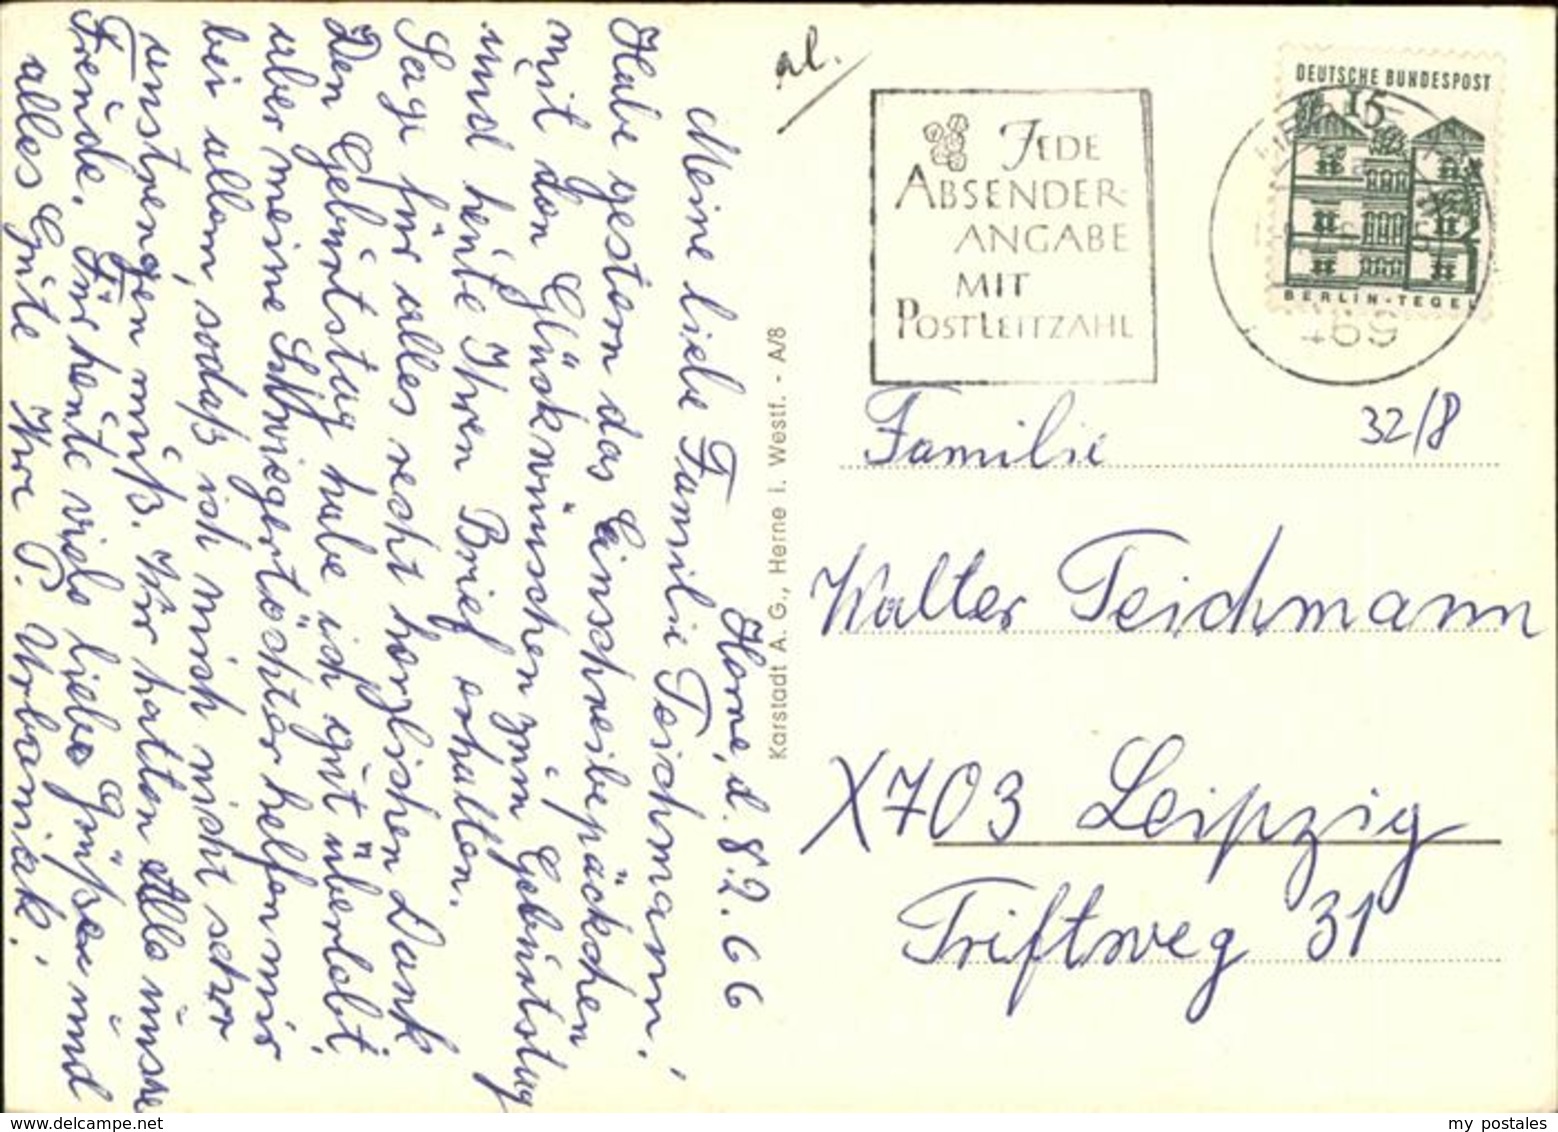 Herne, d. 8.2.66
Meine liebe Familie Teichmann!
Habe gestern das Einschreibepäckchen
mit den Glückwünschen zum Geburtstag
und heute Ihren Brief erhalten.
Sage für alles recht herzlichen Dank
Den Geburtstag habe ich gut überlebt,
aber meine Schwiegertöchter helfen mir
bei allem, sodaß ich mich nicht sehr
anstrengen muß. Wir hatten Alle unsre
Freude. Für heute viele liebe Grüße und
alles Gute Ihre P. Urbaniak.
Karstadt A. G., Herne i. Westf. - A/8
al.
JEDE
ABSENDER-
ANGABE
MIT
POSTLEITZAHL
DEUTSCHE BUNDESPOST
15
BERLIN-TEGEL
469
32/8
Familie
Walter Teichmann
X703 Leipzig
Triftweg 31
my postales